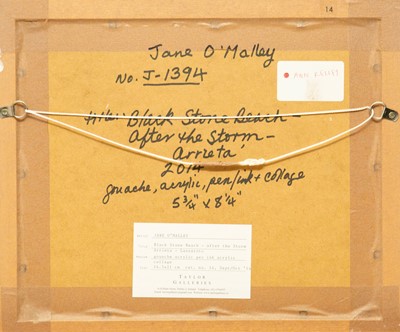 14
Jane O'Malley
No. J-1394
Title: 'Black Stone Beach –
After the Storm –
Arrieta'
2014
gouache, acrylic, pen/ink + collage
5 3/4" x 8 1/4"
JANE O'MALLEY
Black Stone Beach - After the Storm
Arrieta - Lanzarote
gouache acrylic pen ink acrylic
collage
TAYLOR
GALLERIES